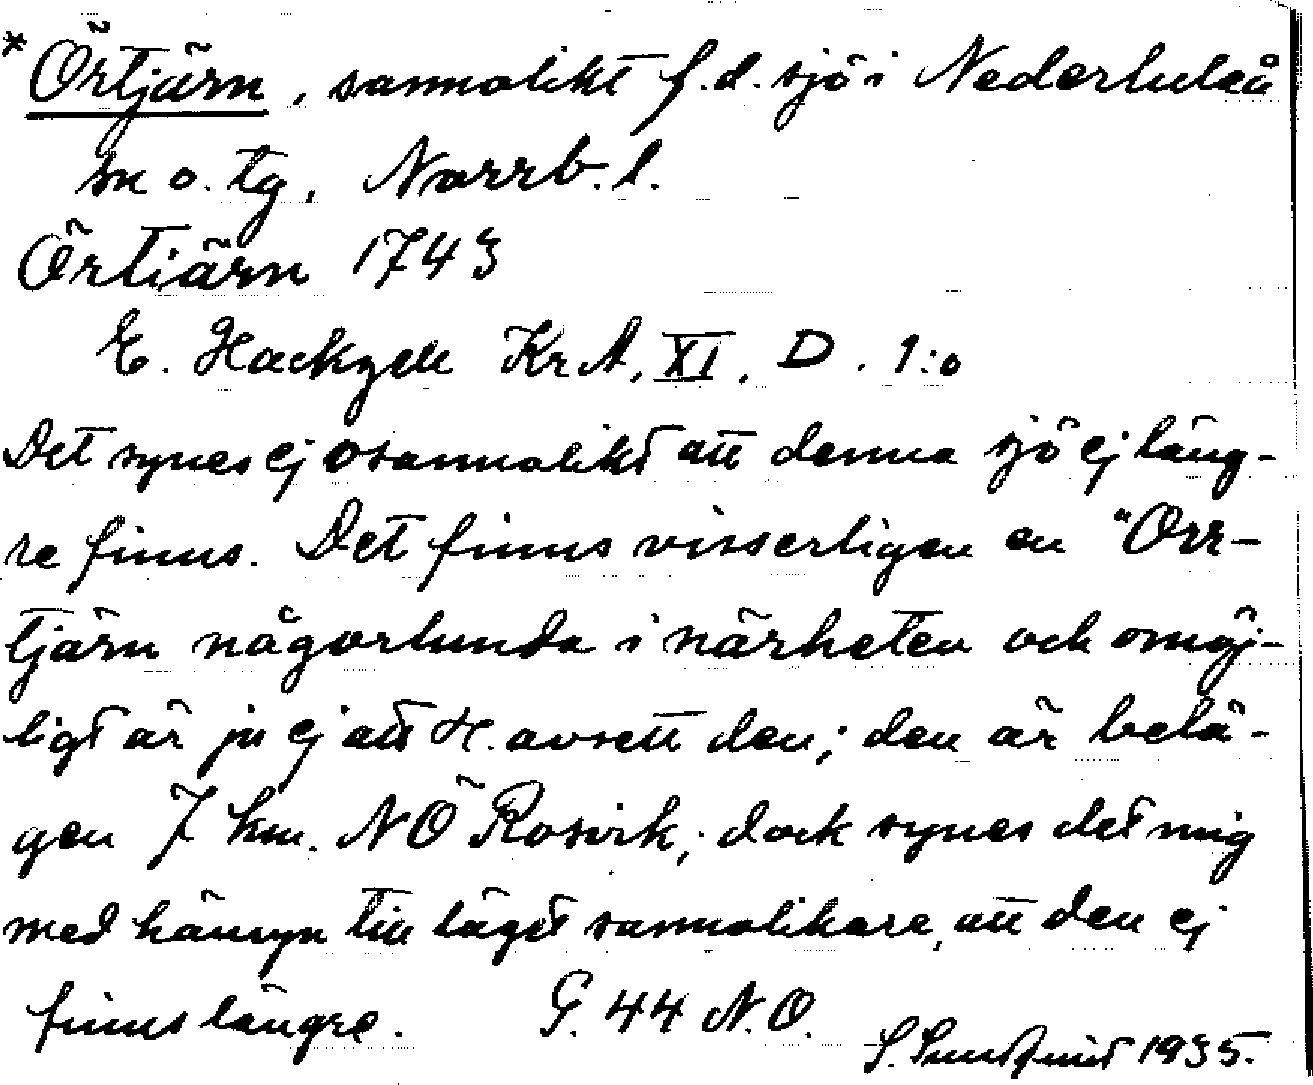 *Örtjärn, sannolikt f.d. sjö i Nederluleå
sn o. tg, Norrb. l.
Örtiärn 1743
E. Hackzell KrA, XI, D. 1:o
Det synes ej osannolikt att denna sjö ej läng-
re finns. Det finns visserligen en "Orr-
tjärn någorlunda i närheten och omöj-
ligt är ju ej att H. avsett den; den är belä-
gen 7 km. NÖ Rosvik; dock synes det mig
med hänsyn till läget sannolikare, att den ej
finns längre. G. 44 N.O.
S. Sundqvist 1935.